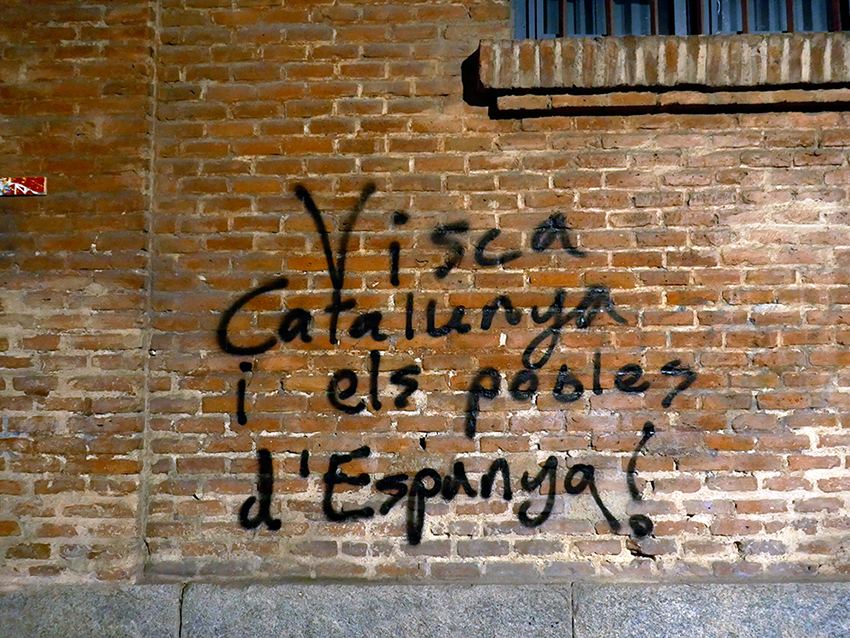 Visca
Catalunya
i els pobles
d'Espanya!